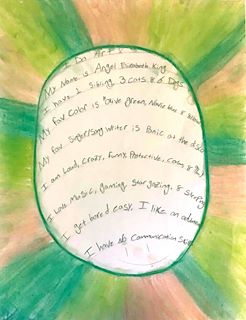 I Do Art
My Name is Angel Elizabeth King
I have 1 sibling 3 cats & 6 Dogs
My fav color is olive green, Navie blue &
My fav singer/song writer is Panic at the disco
I am Loud, Crazy, funny, Protective, calm &
I love music, gaming, star gazing, & sleeping
I get bored easy, I like an
I have no Communication Skills